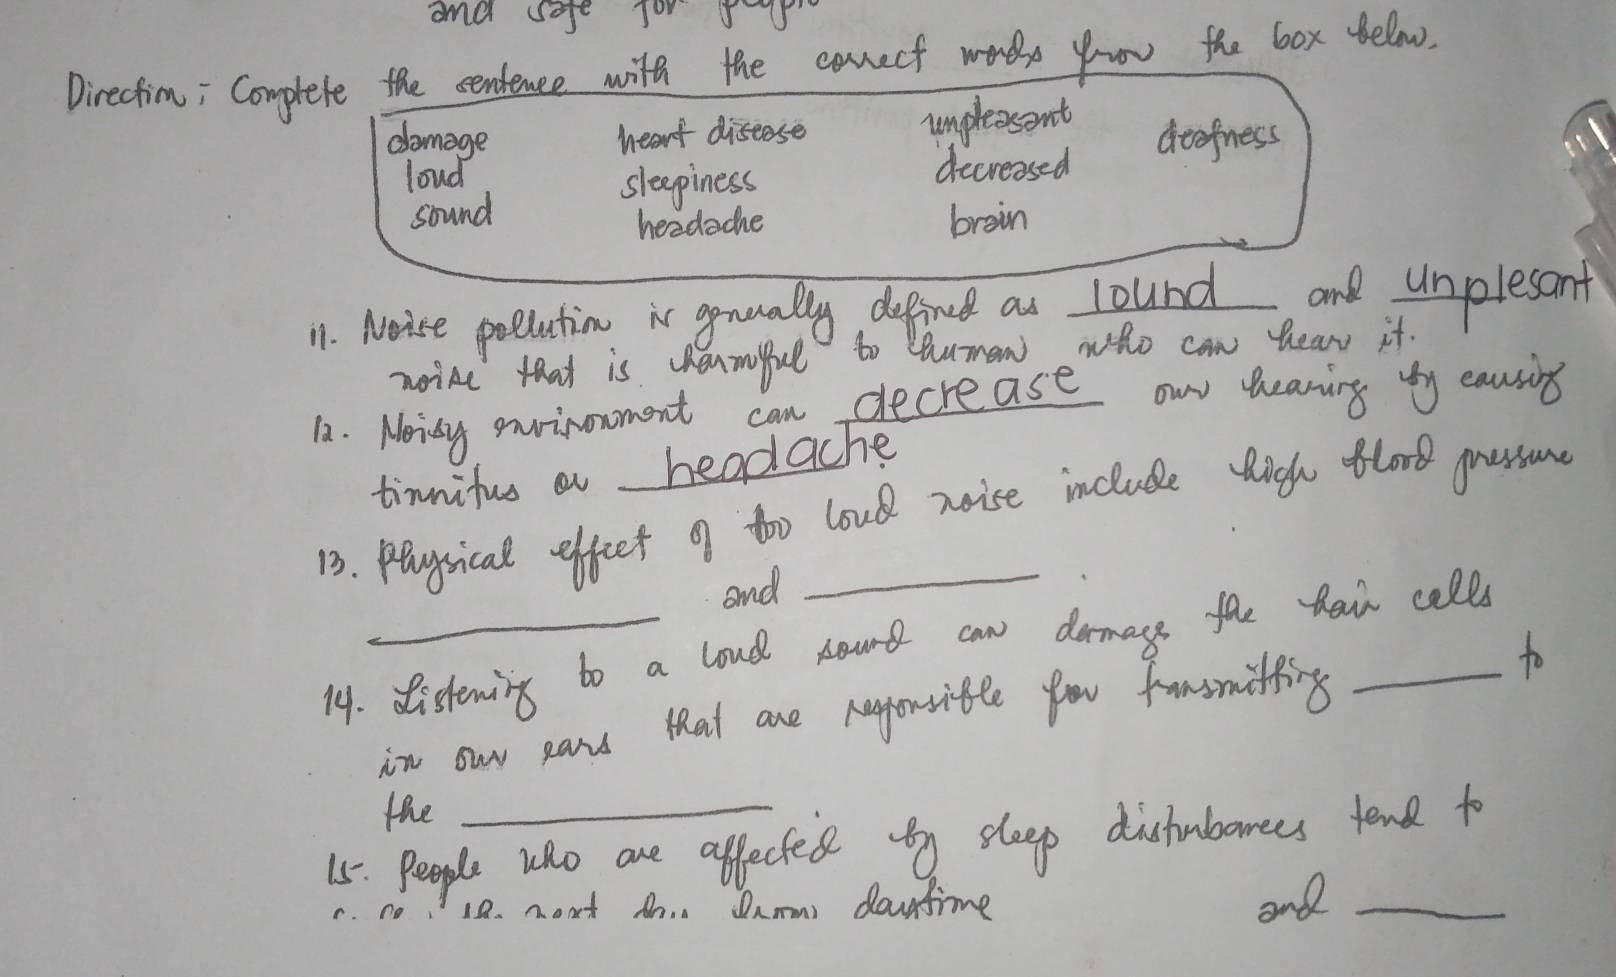 and safe for people
Direction: Complete the sentence with the correct words from the box below.
damage heart disease unpleasant deafness
loud sleepiness decreased
sound headache brain
11. Noise pollution is generally defined as lound and unplesant
noise that is harmful to human who can hear it.
12. Noisy environment can decrease our hearing by causing
tinnitus or headache
13. Physical effect of too loud noise include high blood pressure
and .
14. Listening to a loud sound can damage the hair cells
in our ears that are responsible for transmitting to
the
15. People who are affected by sleep disturbances tend to
next from daytime and